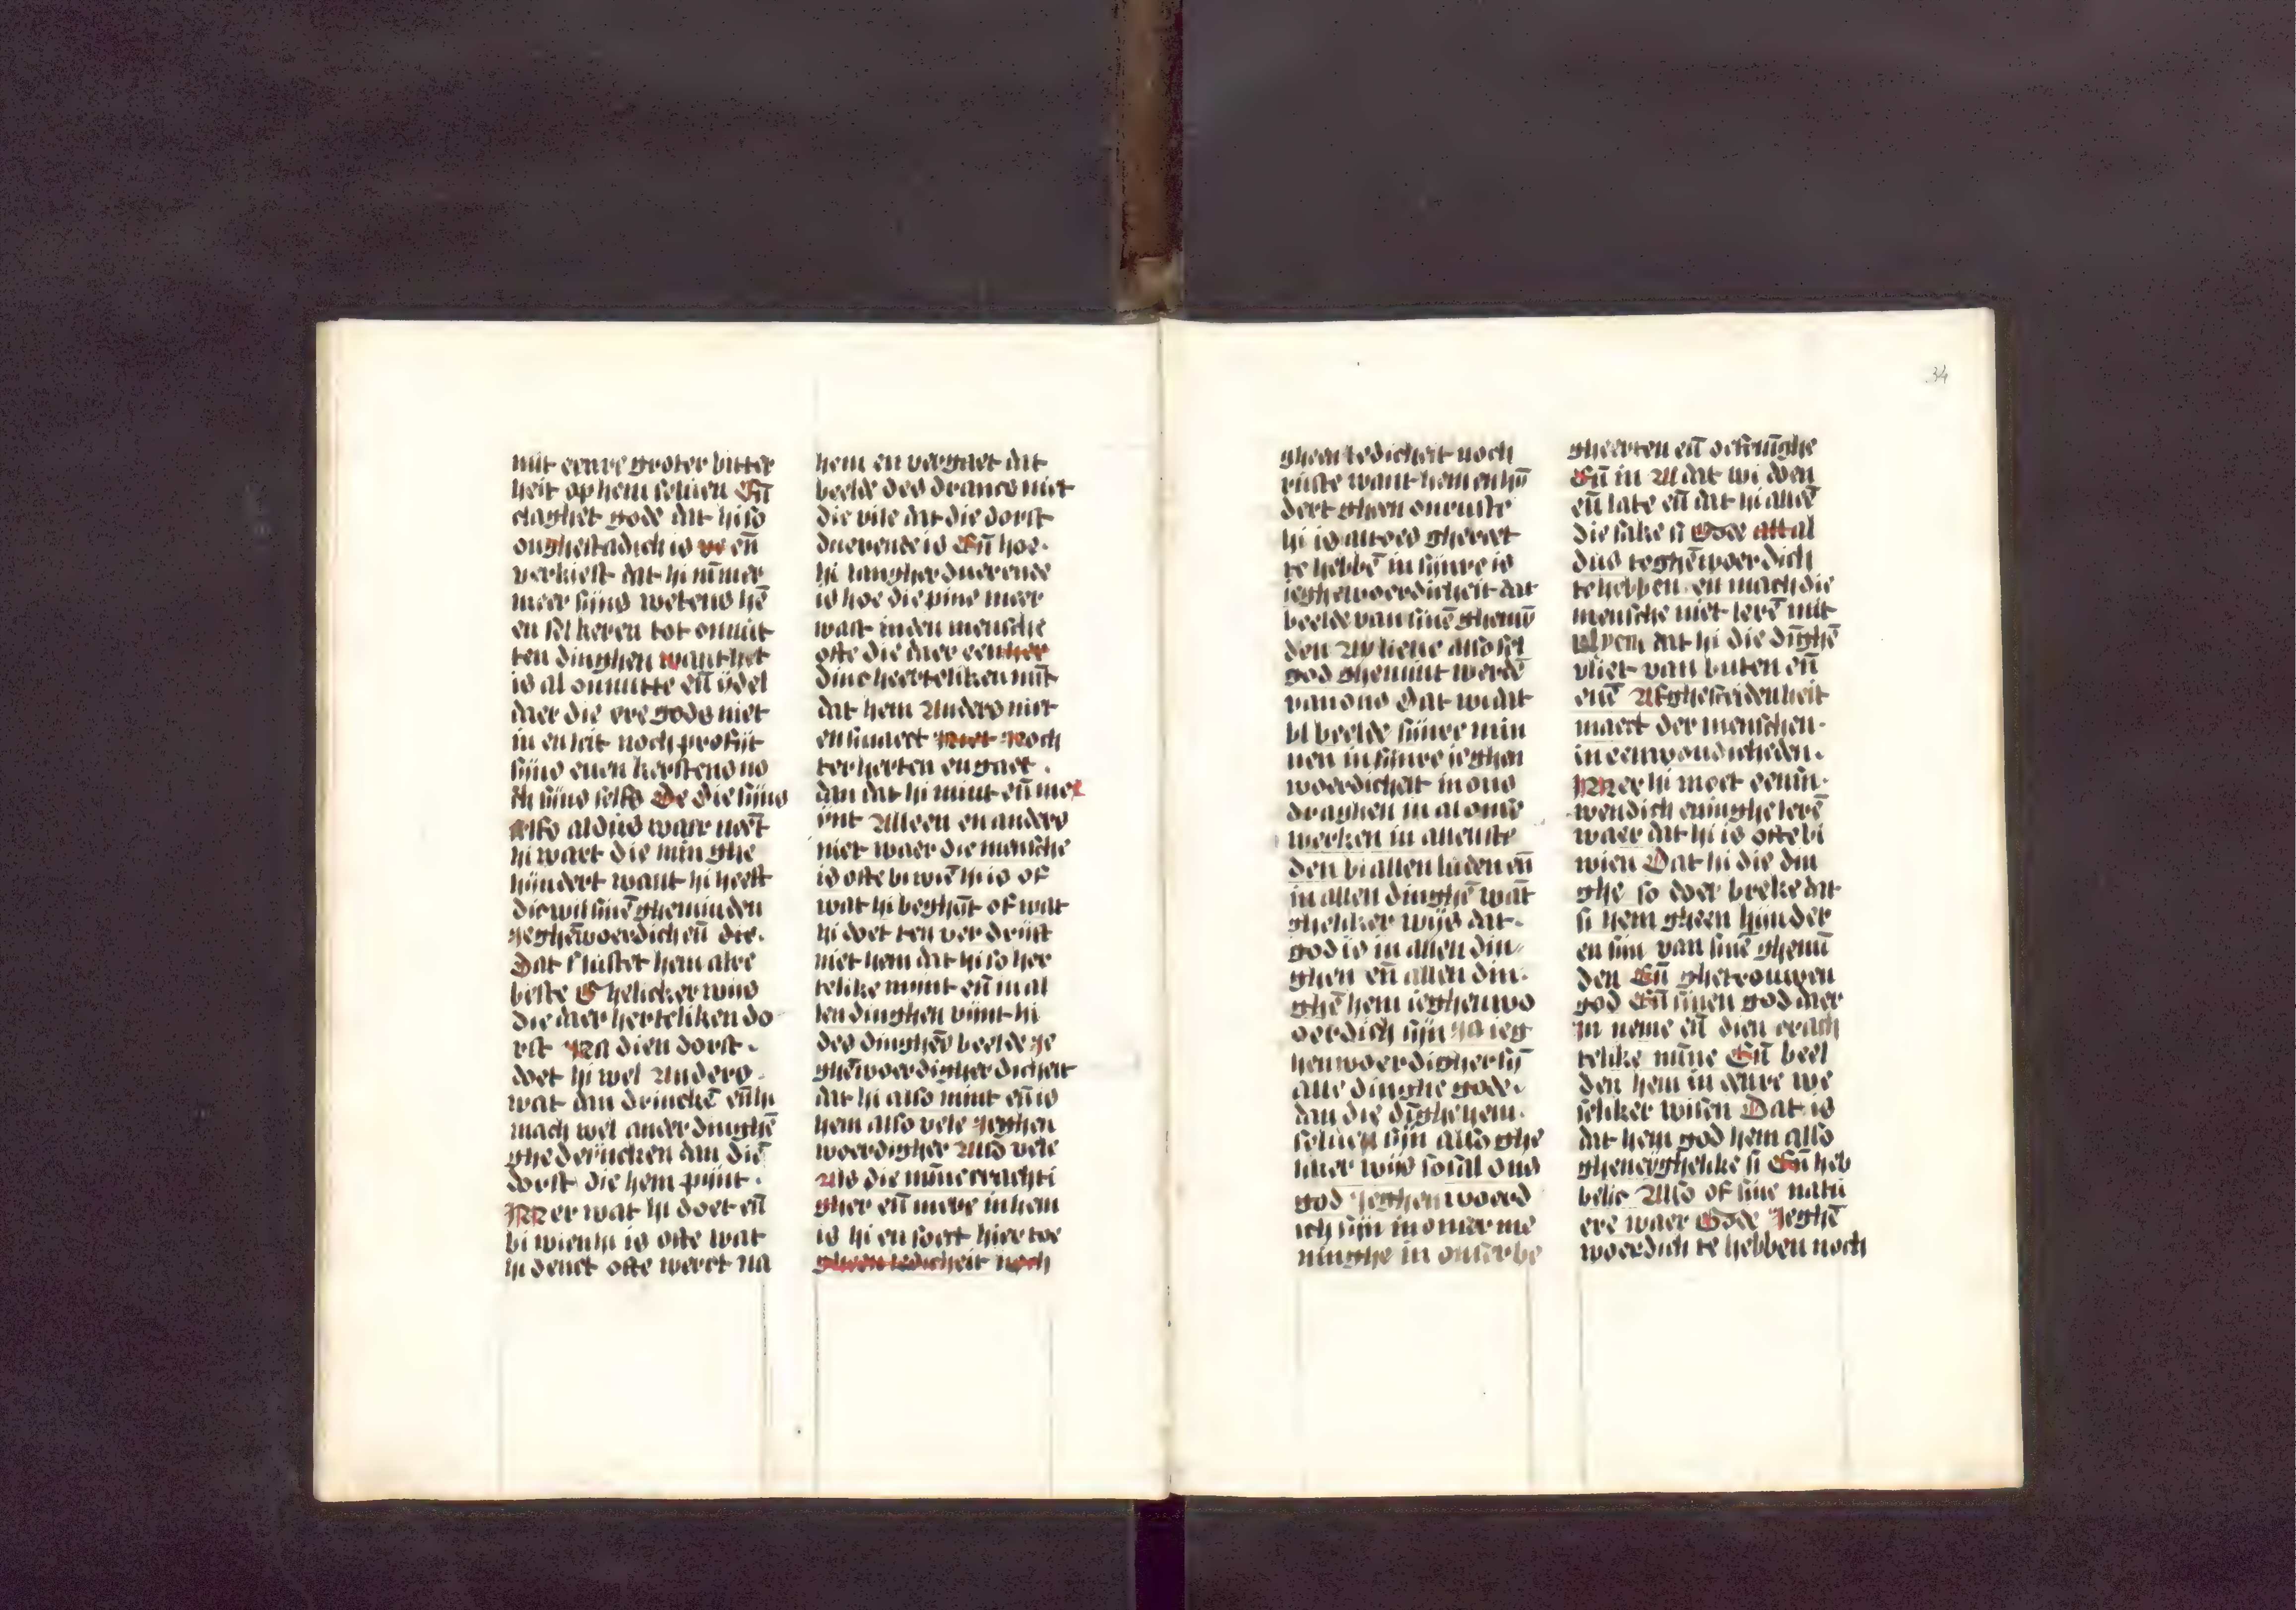 mit eenre groter bitter
heit op hem seluen En̄
claghet gode dat hi so
onghestadich is en̄
verkiest dat hi nūmer
meer sijns wetens hē
en sel keren tot onnut
ten dinghen want het
is al onnutte en̄ ydel
daer die ere gods niet
in en leit noch profijt
sijns euen kerstens no
ch sijns selfs De die sijns
selfs aldus waer neēt
hi waert die min ghe
hijndert want hi heeft
die wil sinē gheminden
jeghēwoerdich en̄ die.
Dat smaket hem alre
beste Ghelicker wijs
die daer herteliken do
rst Na dien dorst.
doet hi wel Anders.
wat dan drinckē en̄ hi
mach wel ander dinghē
ghedencken dan die
dorst die hem pijnt.
Mer wat hi doet en̄
bi wien hi is ofte wat
hi denct ofte werct na
hem en vergaet dat
beelde des drancs niet
die wile dat die dorst
duerende is En̄ hoe.
hi langher duerende
is hoe die pine meer
wast in den mensche
ofte die daer een
dinc herteliken mīt
dat hem Anders niet
en smaect noch
ter herten en gaet.
dan dat hi mint en̄ me
int Alleen en anders
niet waer die mensche
is ofte bi wiē hi is of
wat hi beghīt of wat
hi doet ten verdrijft
niet hem dat hi so her
telike mint en̄ in al
len dinghen vijnt hi
des dinghes beelde je
ghēwoerdigher dicheit
dat hi also mint en̄ is
hem also vele Jeghen
woerdigher Als vele
Als die mīne crachti
gher en̄ mere in hem
is hi en soect hier toe
gheen ledicheit noch
gheen ledicheit noch
ruste want hem en hī
dert gheen onruste
hi is altoes ghereet
te hebbē in sijnre is
jeghewoerdicheit dat
beelde van sinē ghemī
den Mi lieue also sel
god ghemint werdē
van ons Dat wi dat
bl beelde sijnre min
nen in sijnre jeghen
woerdicheit in ons
draghen in al onse
werken in allen ste
den bi allen luden en̄
in allen dinghē wāt
ghelikker wijs dat.
god is in allen din
ghen en̄ allen din.
ghē hem ieghenwo
oerdich sijn Ja ieg
henwoerdigher sij̄
alle dinghe gode.
dan die dīghe hem.
seluen sijn also ghe
liker wijs so sal ons
god Jeghen woerd
ich sijn in onser me
ninghe in onser be
gheerten en̄ oefeninghe
En̄ in Al dat wi doen
en̄ late en̄ dat hi allē
die sake si Gode al
dus teghēwoerdich
te hebben. en mach die
mensche niet lerē mit
vlyen dat hi die dīghē
vliet van buten en̄
enē Afghesceidenheit
maect der menschen.
in eenvoudicheden.
Mer hi moet een in.
wendich eninghe lerē
waer dat hi is ofte bi
wien Dat hi die din
ghe so doer breke dat
si hem gheen hijnder
en sijn van sinē ghemī
den En̄ ghetrouwen
god En̄ sinen god daer
in neme en̄ dien crach
telike mīne En̄ beel
den hem in eenre we
seliker wisen Dat is
dat hem god hem also
gheneyghelike si En̄ heb
belic Also of sine natu
ere waer Gode Jeghē
woerdich te hebben noch
34